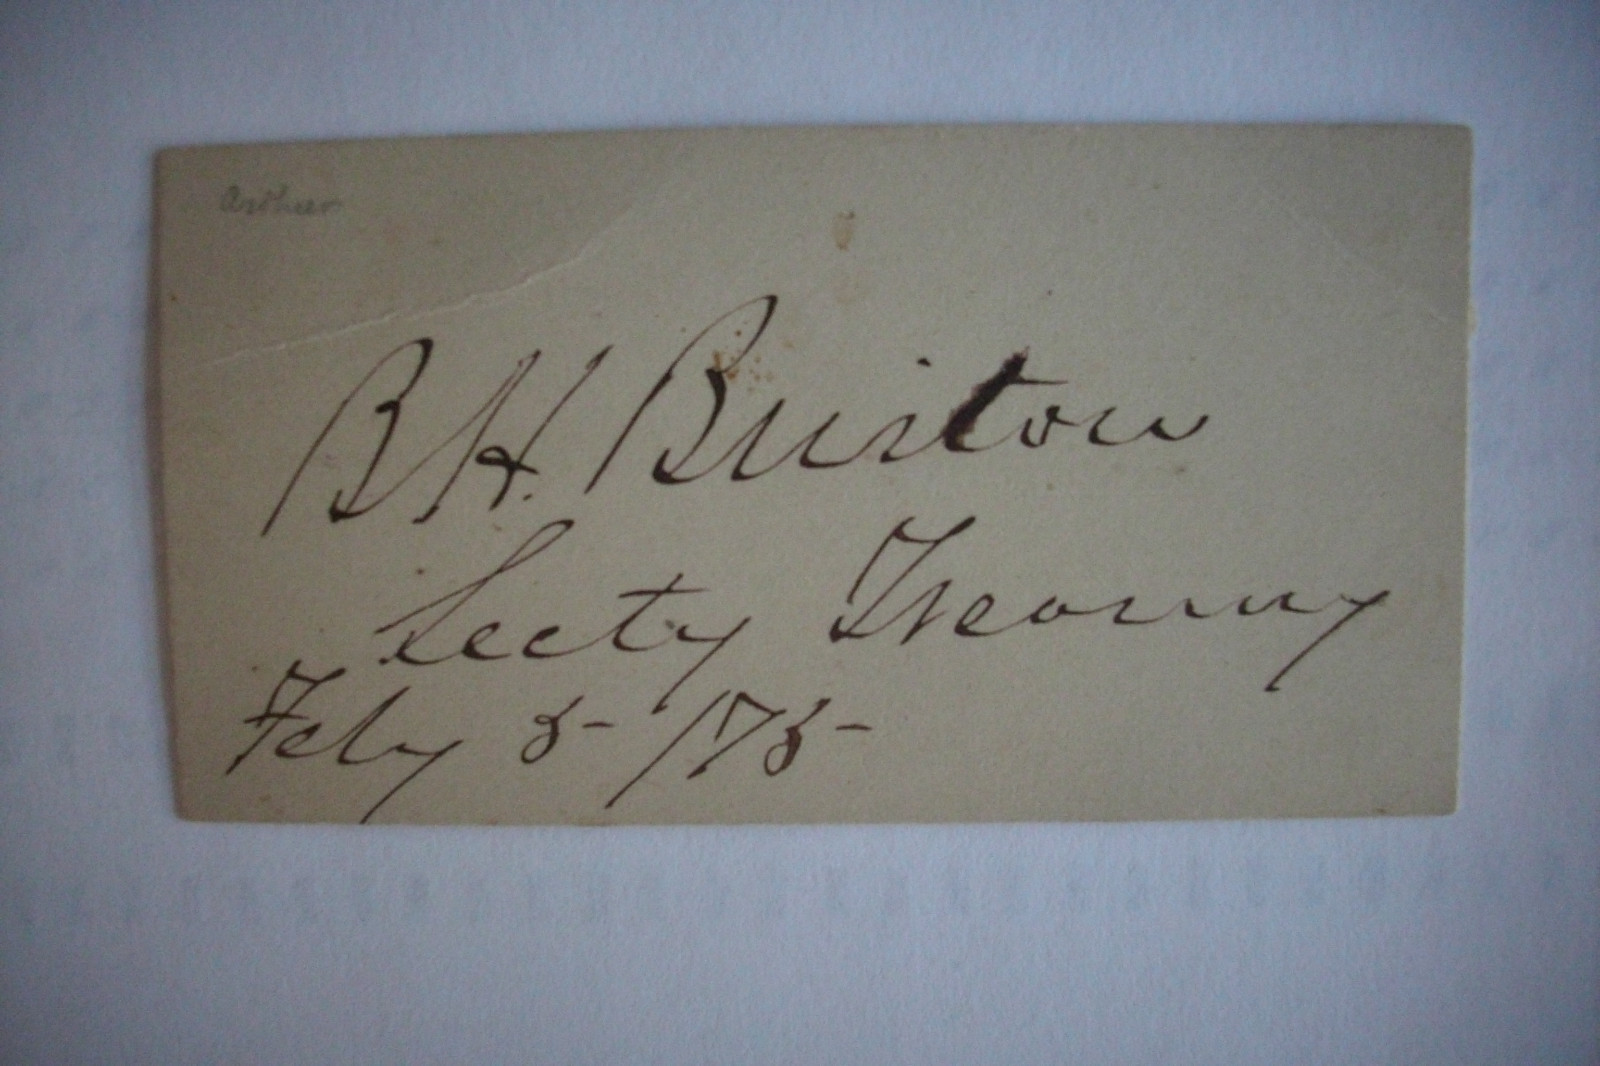 Arthur
B H. Bristow
Secty Treasury
Feby 5 /75